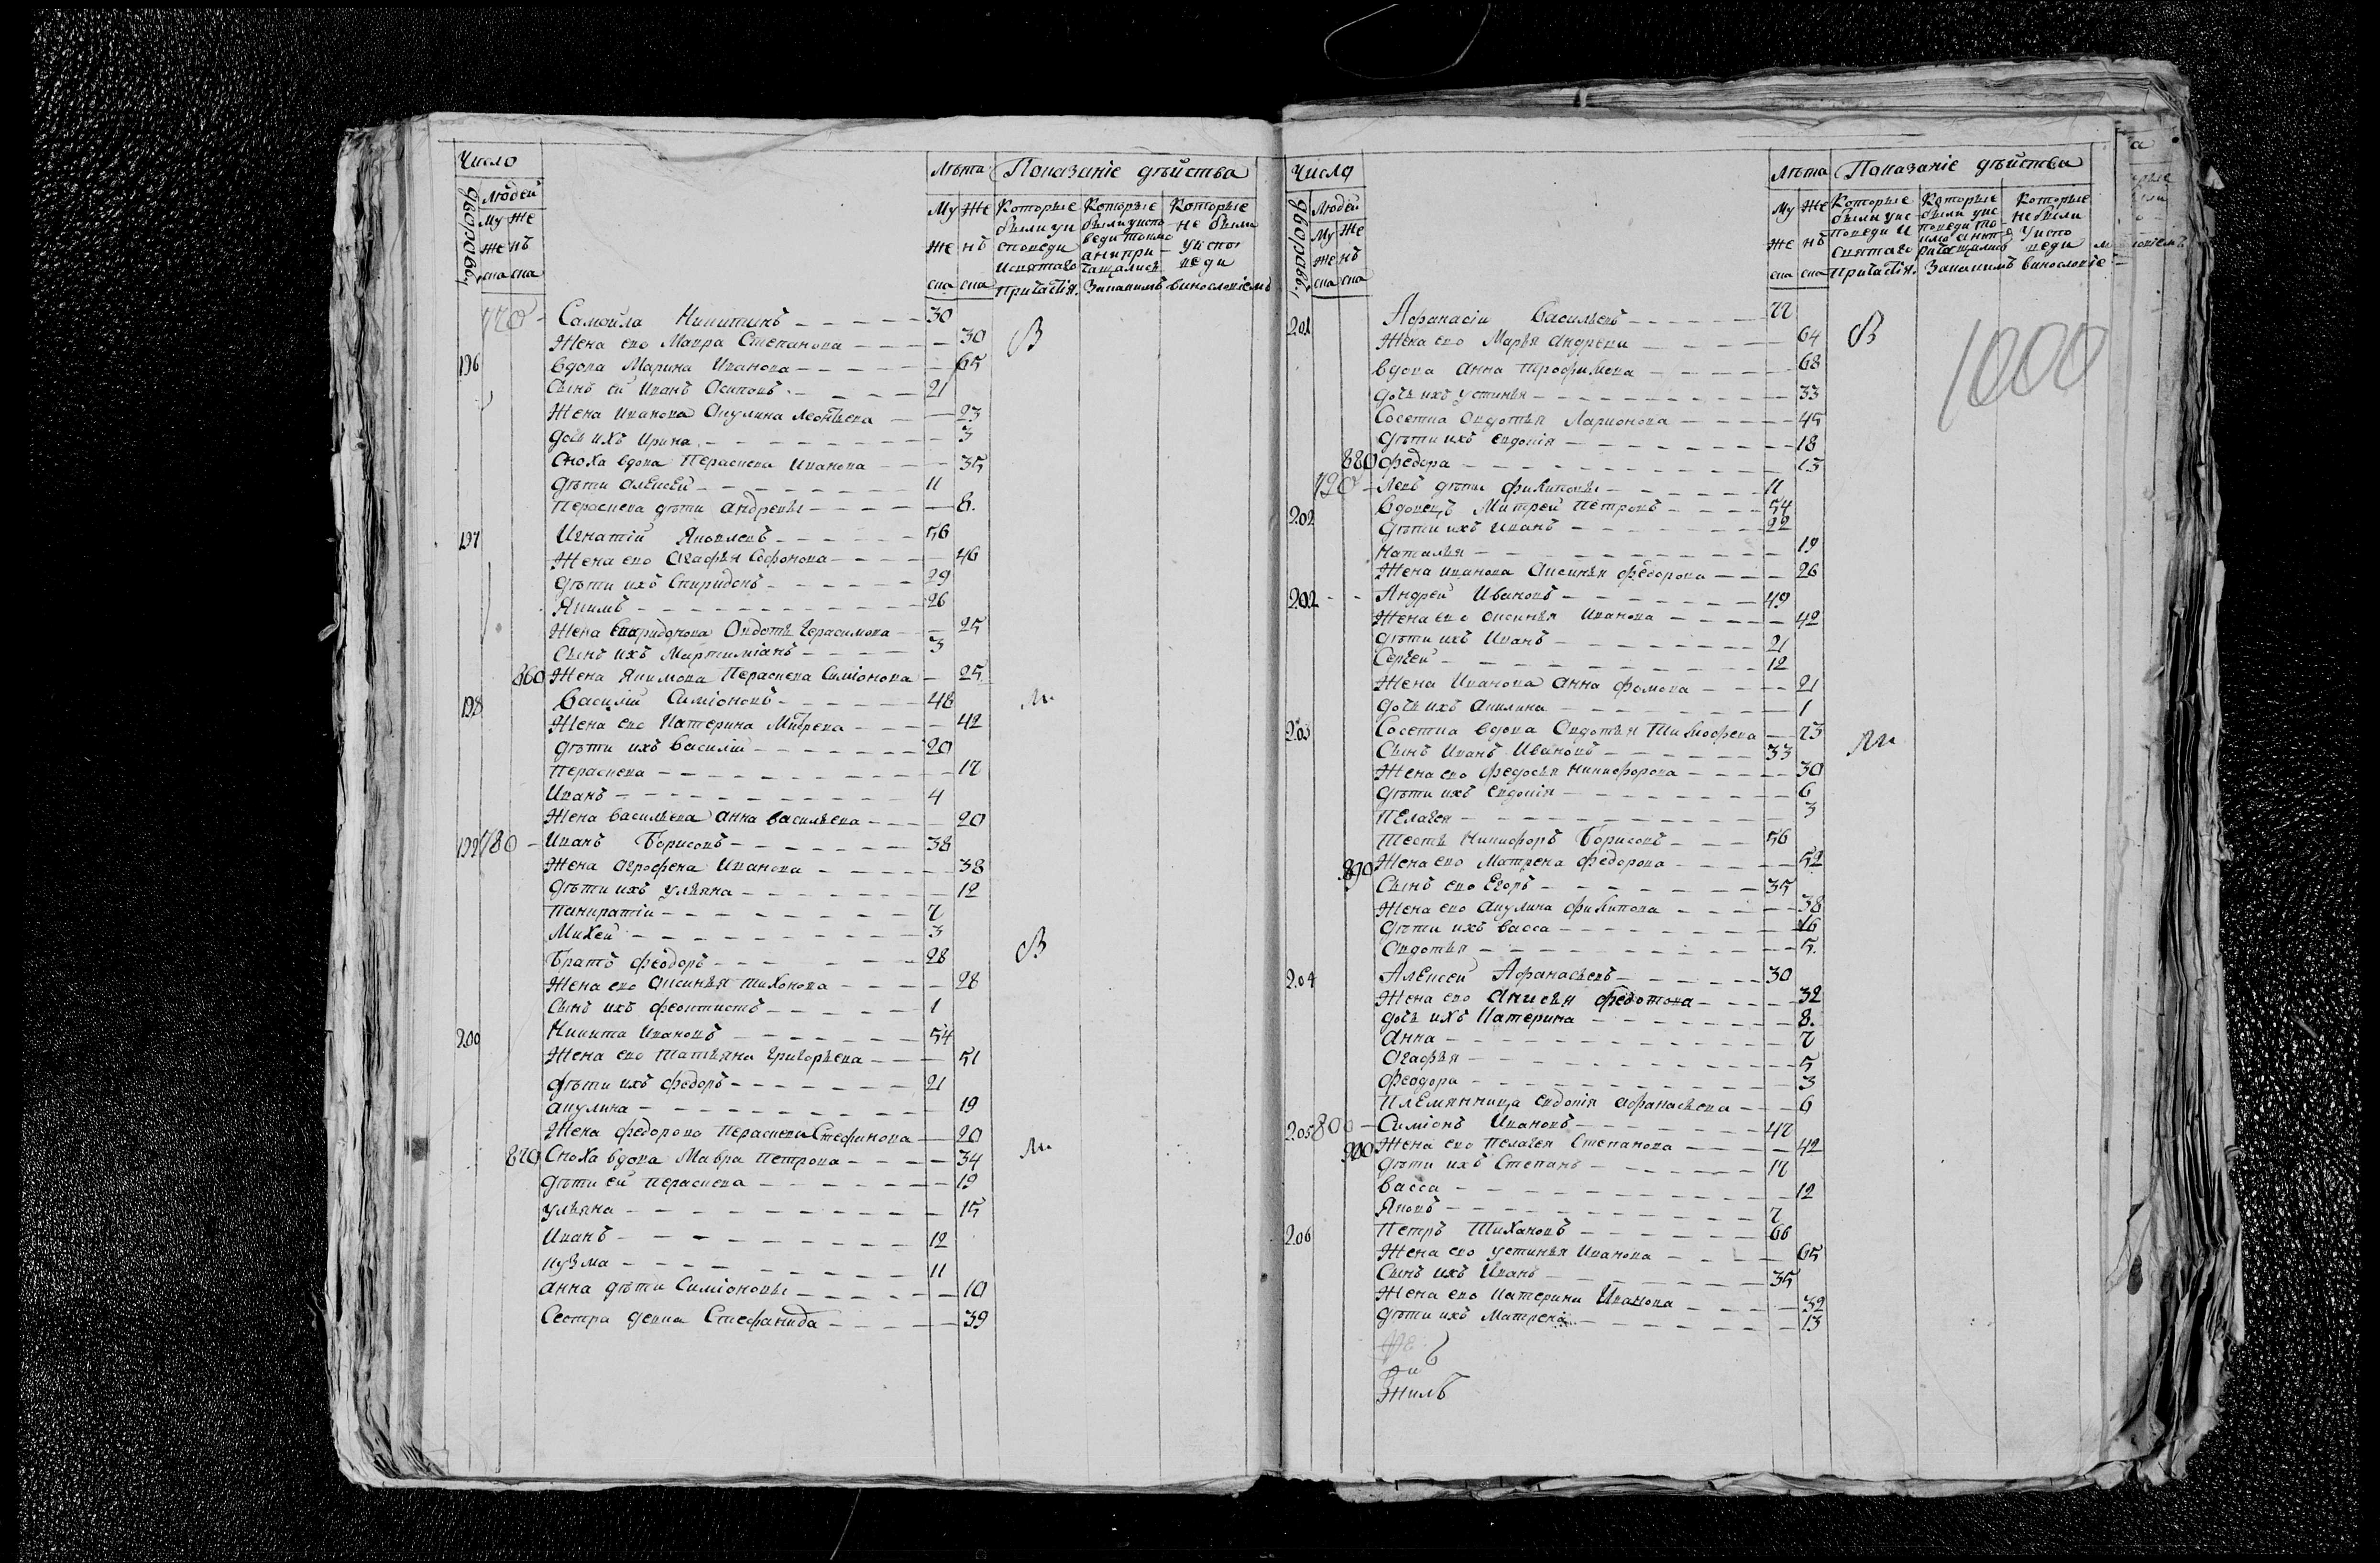 Число
Лѣта Показаніе дѣйства
дворовъ Людей
Му Же Му Же Которые Которые Которые
были уи были уиспо не были
же нъ же нъ споведи веди токмо уиспо
исвятаго анипри веди
ска ска ска ска Причастія. чащались Занакимъ винословіемъ
770 - Самойла Никитинъ 30
Жена его Мавра Степанова 30 В
196 Вдова Марина Иванова 65
Сынъ ей Иванъ Осиповъ 21
Жена Иванова Акулина Леонтьева 23
дочь ихъ Ирина 3
Сноха вдова Пераскева Иванова 35
дѣти Алексей 11
Пераскева дѣти Андревы 8.
197 Игнатій Яковлевъ 56
Жена его Агафья Софонова 46
дѣти ихъ Спиридонъ 29
Якимъ 26
Жена Спиридонова Овдотья Герасимова 25
Сынъ ихъ Мартиміанъ 3
860 Жена Якимова Пераскева Симіонова 25
198 Василій Симіоновъ 48
Жена его Катерина 42
дѣти ихъ Василій 20
Пераскева 17
Иванъ 4
Жена Васильева Анна Васильева 20
199 780 - Иванъ Борисовъ 38
Жена Агрофена Иванова 38
дѣти ихъ Ульяна 12
Панкратій 7
Михей 3
Братъ Феодоръ 28 В
Жена его Аксинья Тихонова 28
Сынъ ихъ Феоктистъ 1
200 Никита Ивановъ 54
Жена его Татьяна Григорьева 51
дѣти ихъ Федоръ 21
Акулина 19
Жена Федорова Пераскева Стефанова 20
870 Сноха вдова Мавра Петрова 34
дѣти ей Пераскева 19
Ульяна 15
Иванъ 12
Кузма 11
Анна дѣти Симіоновы 10
Сестра девка Стефанида 39
Числа
Лѣта Показаніе дѣйства
дворовъ Людей
Му Же Му Же Которые Которые Которые
были уис были уис не были
же нъ же нъ поведи и поведи то уиспо
святаго веди
ска ска ска ска Причастія. Занакимъ винословіе
201 Афанасій Васильевъ 77
Жена его Марья Андрева 64 В
1000
Вдова Анна Трофимова 68
дочь ихъ Устинья 33
Сосетка Овдотья Ларионова 45
дѣти ихъ Евдокія 18
880 Федора 15
790 - Левъ дѣти Филиповы 11
202 Вдовецъ Митрей Петровъ 54
дѣти ихъ Иванъ 22
Наталья 19
Жена Иванова Аксинья Федорова 26
202 Андрей Ивановъ 49
Жена его Аксинья Иванова 42
дѣти ихъ Иванъ 21
Сергей 12
Жена Иванова Анна Фомова 21
дочь ихъ Акилина 1
203 Сосетка вдова Овдотья Тимофева 73
Сынъ Иванъ Ивановъ 33
Жена его Федосья Никифорова 30
дѣти ихъ Евдокія 6
Пелагея 3
Тесть Никифоръ Борисовъ 56
890 Жена его Матрена Федорова 52
Сынъ его Егоръ 35
Жена его Акулина Филипова 38
дѣти ихъ Васса 16
Овдотья 5.
204 Алексей Афанасьевъ 30
Жена его Анисья Федотова 32
дочь ихъ Катерина 8.
Анна 7
Агафья 5
Феодора 3
Племянница Евдокія Афанасьева 6
205 800 - Симіонъ Ивановъ 47
900 Жена его Пелагея Степанова 42
дѣти ихъ Степанъ 17
Васса 12
Яковъ 7
206 Петръ Тихановъ 66
Жена его Устинья Иванова 65
Сынъ ихъ Иванъ 35
Жена его Катерина Иванова 32
дѣти ихъ Матрена 13
Жилъ